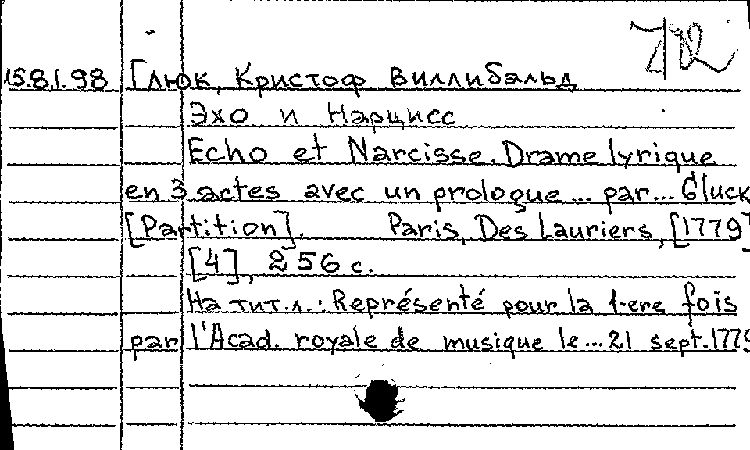 15.8.1.98 Глюк, Кристоф Виллибальд
Эхо и Нарцисс
Echo et Narcisse. Drame lyrique
en 3 actes avec un prologue ... par ... Gluck
[Partition]. Paris, Des Lauriers, [1779]
[4], 256 с.
На тит.л.: Représenté pour la 1-ere fois
par l'Acad. royale de musique le ... 21 sept. 1779